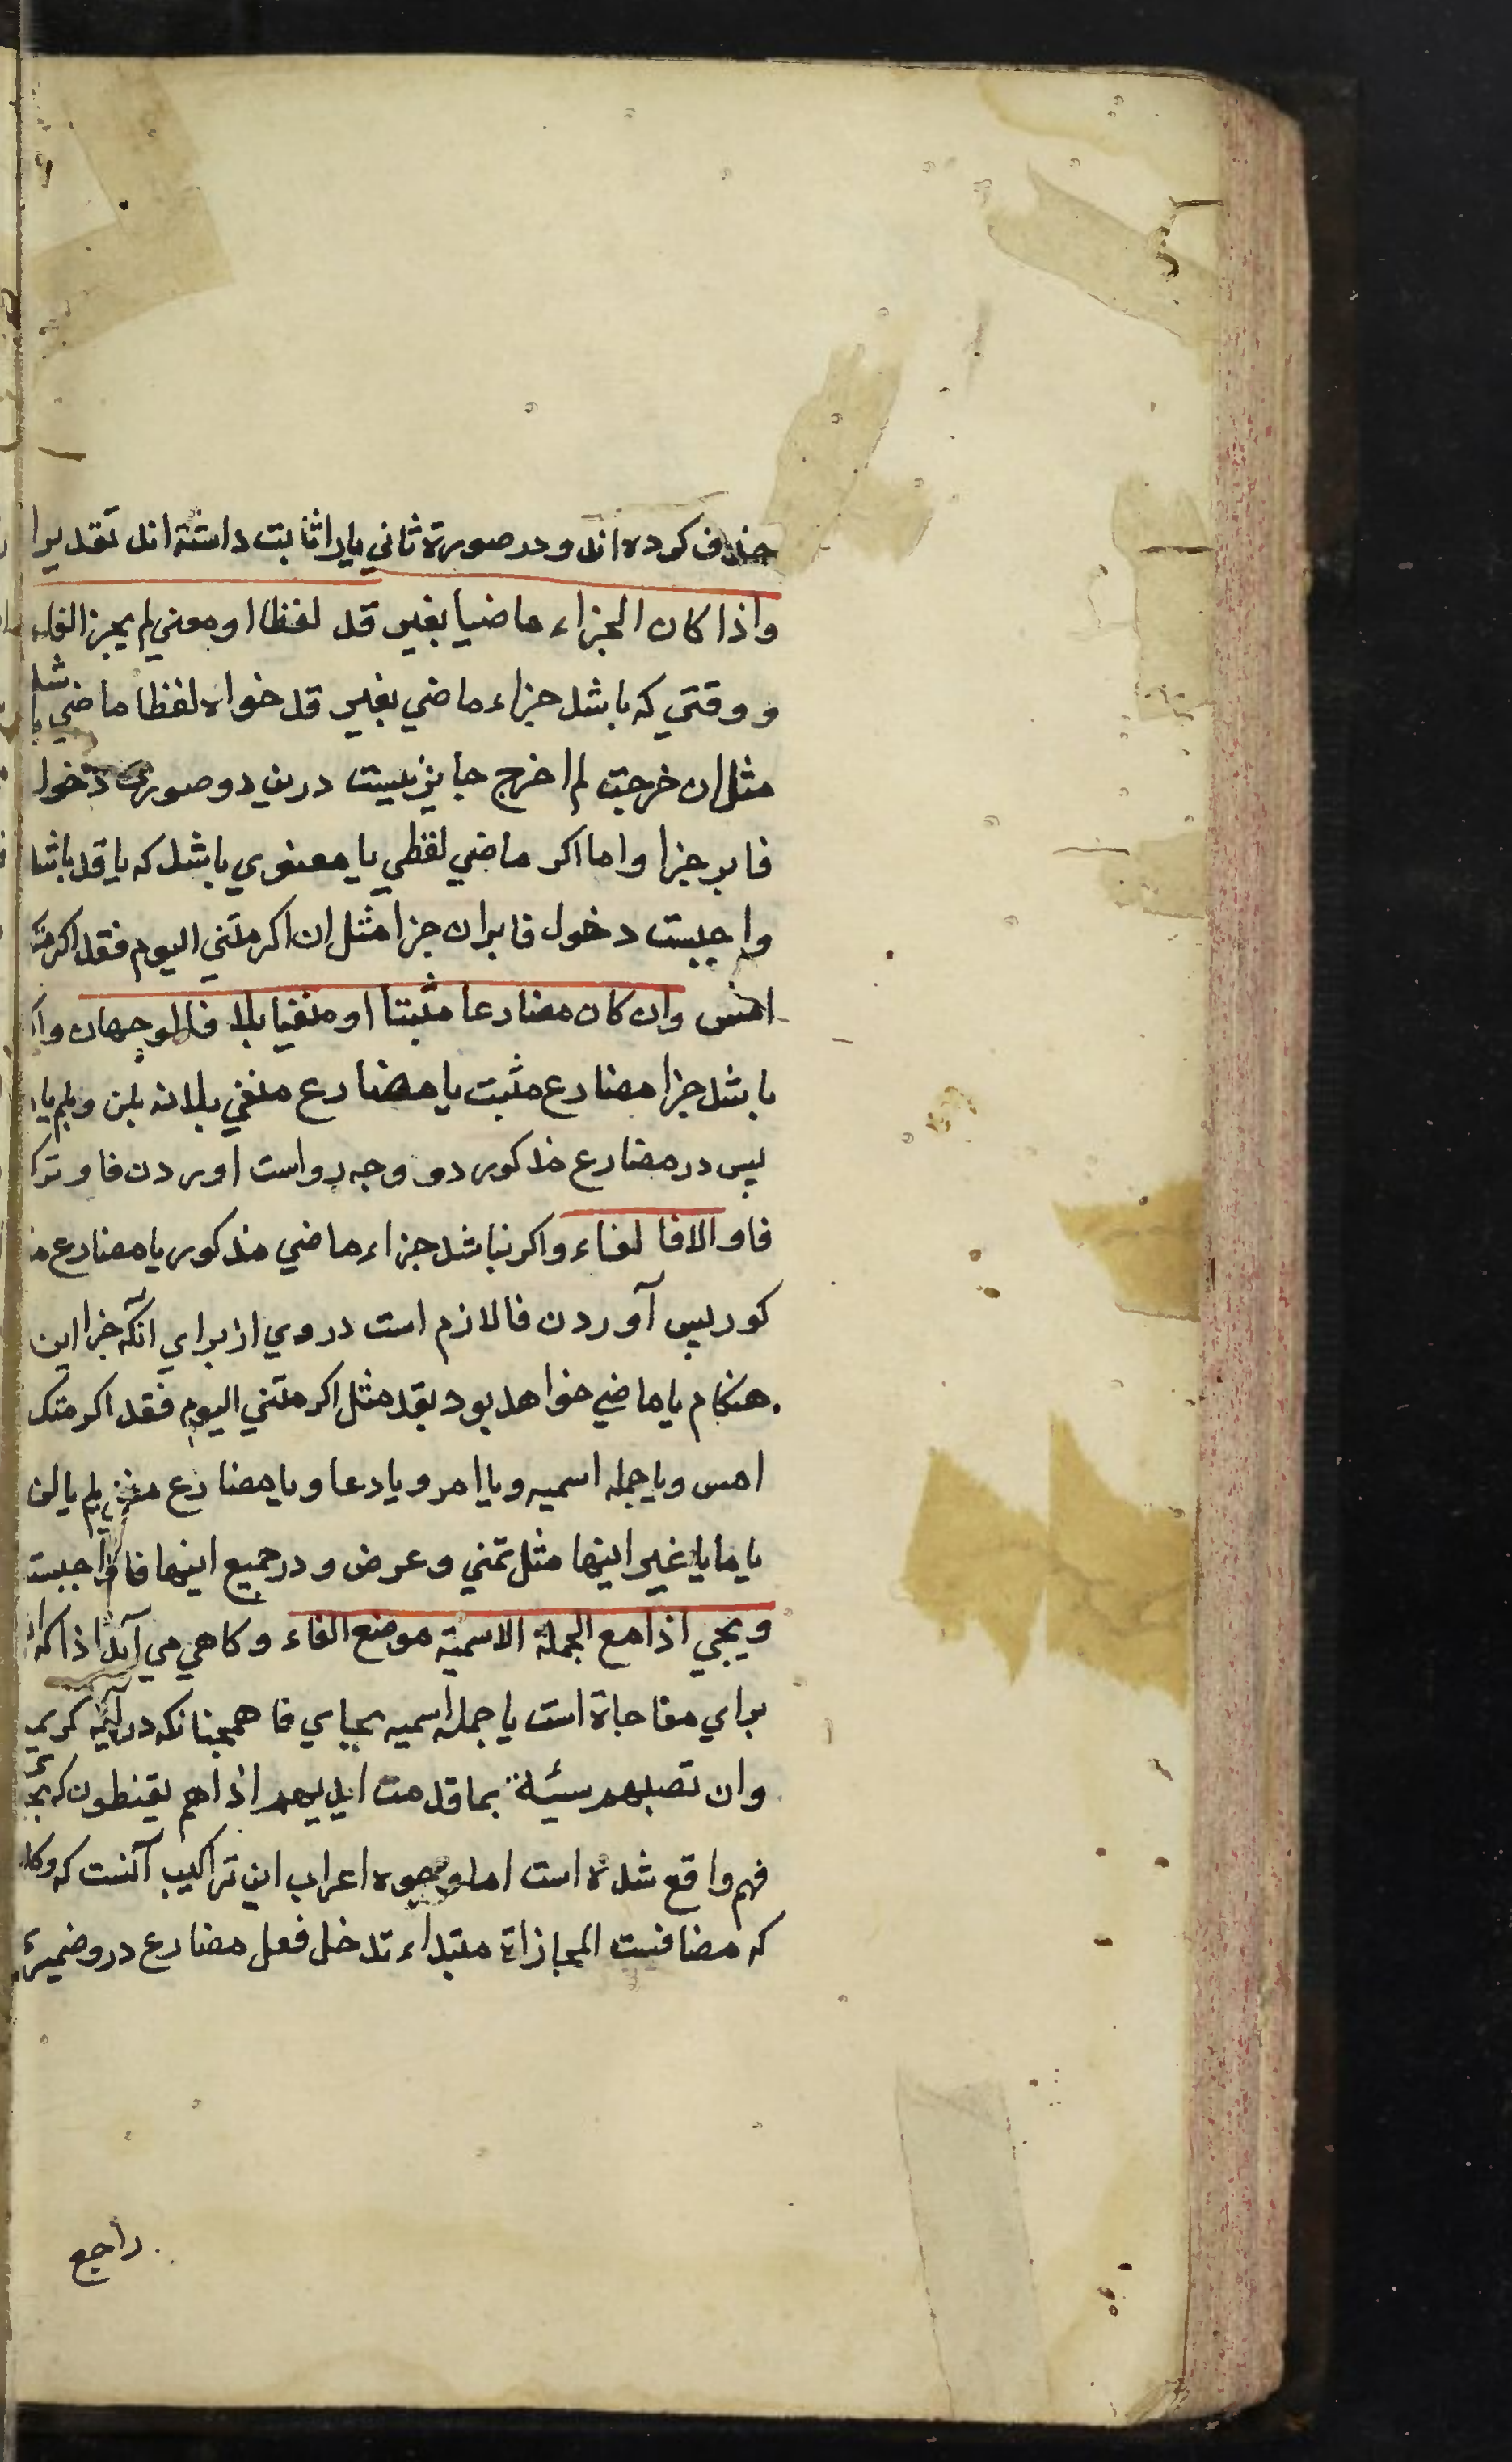 حذف کرده اند و در صورة ثاني يا را ثابت داشته اند تقديرا
واذا كان الجزاء ماضيا بغير قد لفظا او معني لم يجز الفاء
و وقتي كه باشد جزاء ماضي بغير قد خواه لفظا ماضي باشد
مثل ان خرجت لم اخرج جايز نيست درين دو صورت دخول
فا بر جزا واما اكر ماضي لفظي يا معنوي باشد كه با قد باشد
واجبست دخول فا بران جزا مثل ان اكرمتني اليوم فقد اكرمتك
امس وان كان مضارعا مثبتا او منفيا بلا فالوجهان واكر
باشد جزا مضارع مثبت يا مضارع منفي بلا نه بلن و بلم يا
پس در مضارع مذكور دو وجه رواست اوردن فا و ترك
فا والا فالفاء واكر نباشد جزاء ماضي مذكور يا مضارع مذ
كور پس آوردن فا لازم است در وي از براي آنكه جزا اين
هنكام يا ماضي خواهد بود بقد مثل اكرمتني اليوم فقد اكرمتك
امس ويا جمله اسميه ويا امر ويا دعا ويا مضارع منفي بلم يا لن
يا ما يا غير اينها مثل تمني و عرض و در جميع اينها فا واجبست
ويجي اذا مع الجملة الاسمية موضع الفاء و كاهي مي آيد اذا كه
براي مفاجاة است با جمله اسميه بجاي فا همچنانكه در آيه كريمه
وان تصبهم سيئة بما قدمت ايديهم اذا هم يقنطون كه بجاي
فهم واقع شده است اما وجوه اعراب اين تراكيب آنست كه و كلم
كه مضافست المجازاة مبتداء تدخل فعل مضارع درو ضميري
راجع